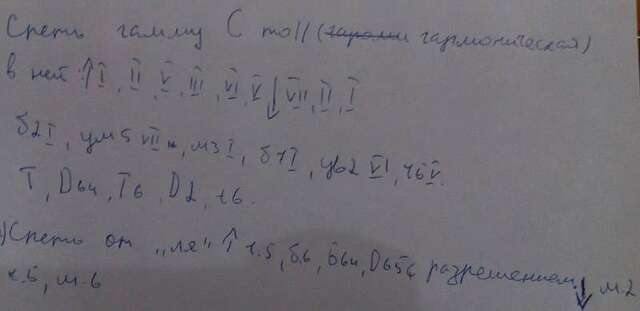 Спеть гамму C moll (гармоническая)
в ней: ↑ I, II, V, III, VI, V ↓ VII, II, I
б2 I, ум5 VII, м3 I, б7 I, ув2 VI, ч5 V.
T, D64, T6, D2, t6.
Спеть от „ля" ↑ ч.5, б.6, Б64, D65 с разрешением, ↓ м.2
ч.5, м.6